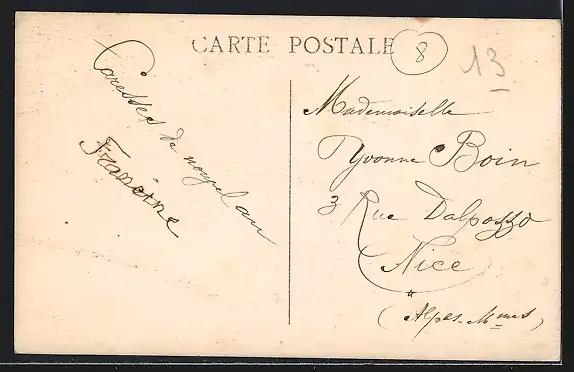 CARTE POSTALE
8
13
Caresses de nouvel an
Francine
Mademoiselle
Yvonne Boin
3 Rue Dalpozzo
Nice
(Alpes-Mmes)